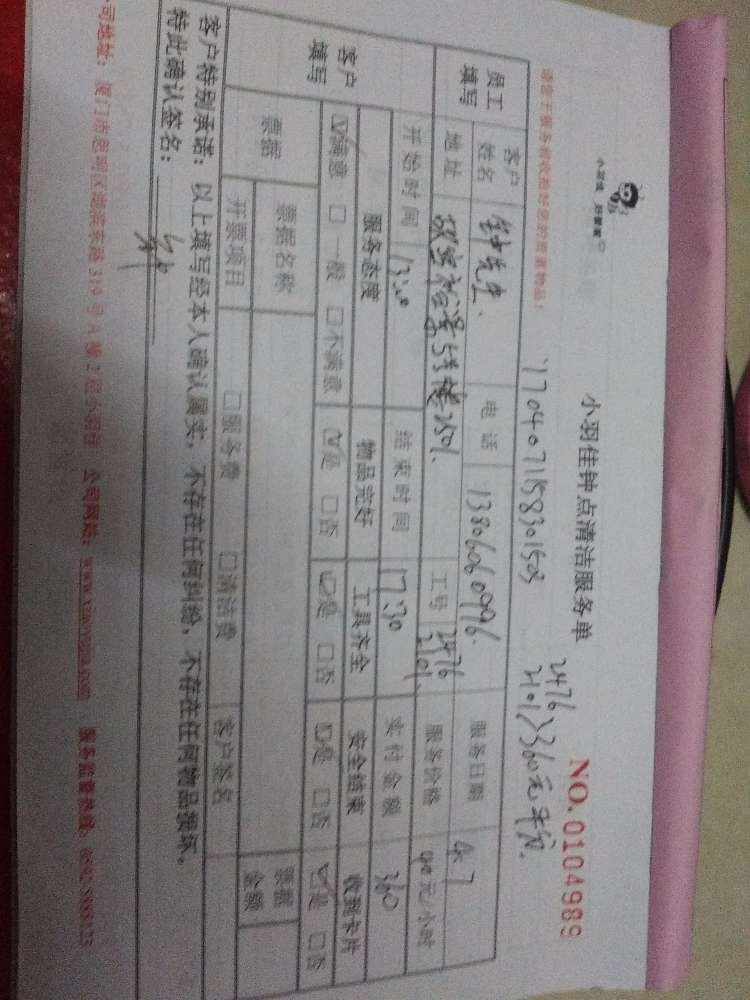 小羽佳 好管家
小羽佳钟点清洁服务单
NO. 0104989
2476
2101 360元平分.
170407158301503
请您于服务前收拾好您的贵重物品!
员工填写 客户姓名 钟先生. 电话 13806060996. 服务日期 4.7
地址 5号楼2501. 工号 2476 2101. 服务价格 40元/小时
客户填写 开始时间 13:00 结束时间 17:30 实付金额 360
服务态度 物品完好 工具齐全 安全结束 收到卡片
☑满意 □一般 □不满意 ☑是 □否 ☑是 □否 ☑是 □否 ☑是 □否
票据 票据名称 票据金额
开票项目 □服务费 □清洁费 客户签名
客户特别承诺:以上填写经本人确认属实,不存在任何纠纷,不存在任何物品损坏。
特此确认签名:
司地址:厦门市思明区湖滨东路319号A楼2层小羽佳 公司网站:www.xiaoyujia.com 服务监督热线: